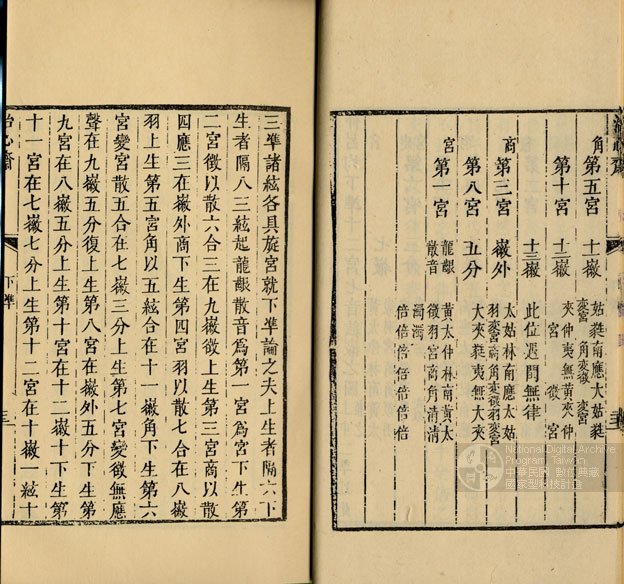 角 第五宮 十一徽 姑蕤南應大姑蕤
變宮 角變徵 變宮
第十宮 十二徽 夾仲夷無黃夾仲
宮 徵 宮
十三徽 此位遇閏無律
商 第三宮 徽外 太姑林南應太姑
羽變宮商角變徵羽變宮
第八宮 五分 大夾蕤夷無大夾
宮 第一宮 龍齦 黃太仲林南黃太
散音 徵羽宮商角清清
濁濁
倍倍倍倍倍倍倍
三準諸絃各具旋宮就下準論之夫上生者隔六下
生者隔八三絃起龍齦散音爲第一宮爲宮下生第
二宮徵以散六合三在九徽徵上生第三宮商以散
四應三在徽外商下生第四宮羽以散七合在八徽
羽上生第五宮角以五絃合在十一徽角下生第六
宮變宮散五合在七徽三分上生第七宮變徵無應
聲在九徽五分復上生第八宮在徽外五分下生第
九宮在八徽五分上生第十宮在十二徽十下生第
十一宮在七徽七分上生第十二宮在十徽一絃十
治心齋
下準
三
National Digital Archive
Program, Taiwan
中華民國 數位典藏
國家型科技計畫